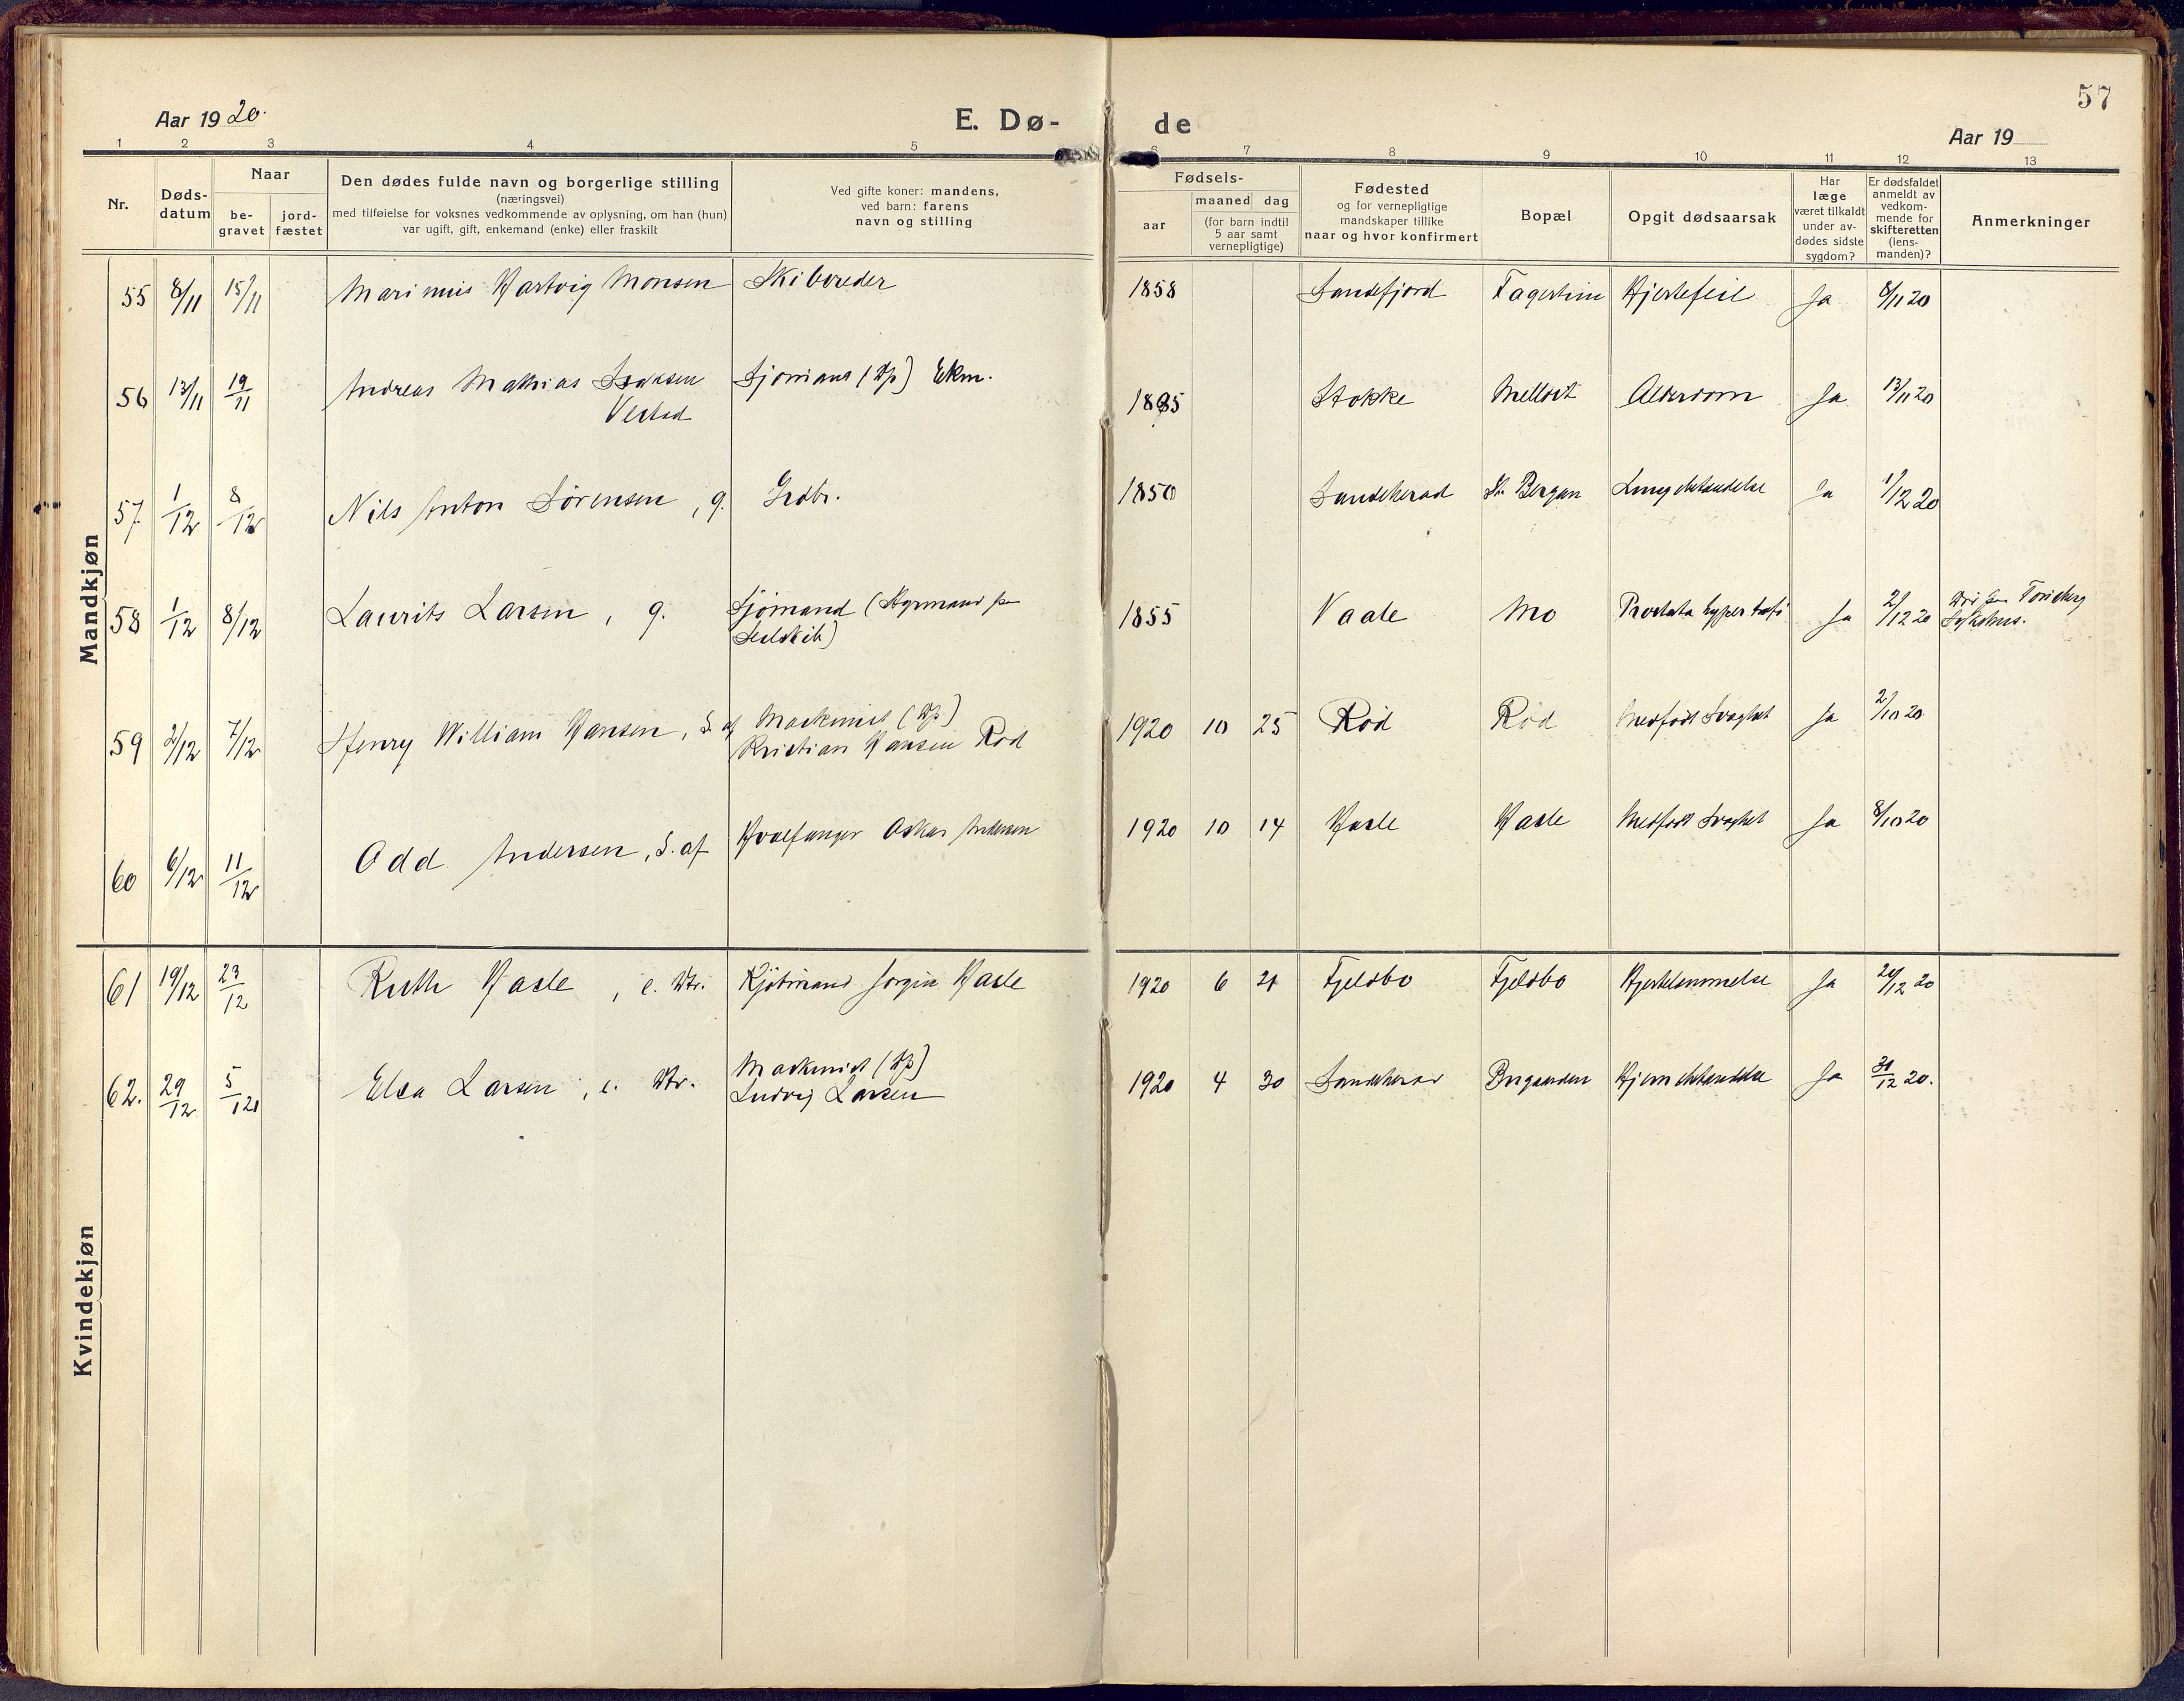 57
Aar 1920.
E. Dø-
de
Aar 19
1 2 3 4 5 6 7 8 9 10 11 12 13
Nr.
Døds-
datum
Naar
be-
gravet
jord-
fæstet
Den dødes fulde navn og borgerlige stilling
(næringsvei)
med tilføielse for voksnes vedkommende av oplysning, om han (hun)
var ugift, gift, enkemand (enke) eller fraskilt
Ved gifte koner: mandens,
ved barn: farens
navn og stilling
Fødsels-
aar
maaned dag
(for barn indtil
5 aar samt
vernepligtige)
Fødested
og for vernepligtige
mandskaper tillike
naar og hvor konfirmert
Bopæl
Opgit dødsaarsak
Har
læge
været tilkaldt
under av-
dødes sidste
sygdom?
Er dødsfaldet
anmeldt av
vedkom-
mende for
skifteretten
(lens-
manden)?
Anmerkninger
Mandkjøn
55 8/11 15/11 Marinius Hartvig Monsen Skibsreder 1858 Sandefjord Fagerheim Hjertefeil Ja 8/11 20
56 13/11 19/11 Andreas Mathias Isaksen Sjømand (Hp) Ekm. Stokke Alderdom Ja 13/11 20
Vestad
57 1/12 8/12 Nils Anton Sørensen, g. Grdbr. 1850 Sandeherad St. Bergan Lungebetændelse Ja 1/12 20
58 1/12 8/12 Laurits Larsen, g. Sjømand (Styrmand paa 1855 Vaale Mo Prostata hypertrofi Ja 2/12 20 Død paa Tønsberg
Seilskib) Sykehus.
59 2/12 7/12 Henry William Hansen, S. af Maskinist (Hp) 1920 10 25 Rød Rød Medfødt Svaghet Ja 2/10 20
Kristian Hansen Rød
60 6/12 11/12 Odd Andersen, S. af Hvalfanger Oskar Andersen 1920 10 14 Hasle Hasle Medfødt Svaghet Ja 8/10 20
Kvindekjøn
61 19/12 23/12 Ruth Hasle, e. Dtr. Kjøbmand Jørgin Hasle 1920 6 21 Fjeldbo Fjeldbo Hjertelammelse Ja 20/12 20
62. 29/12 5/1 21 Elsa Larsen, e. Dtr. Maskinist (Hp) 1920 4 30 Sandeherad Bugaarden Hjernebetændelse Ja 30/12 20.
Ludvig Larsen